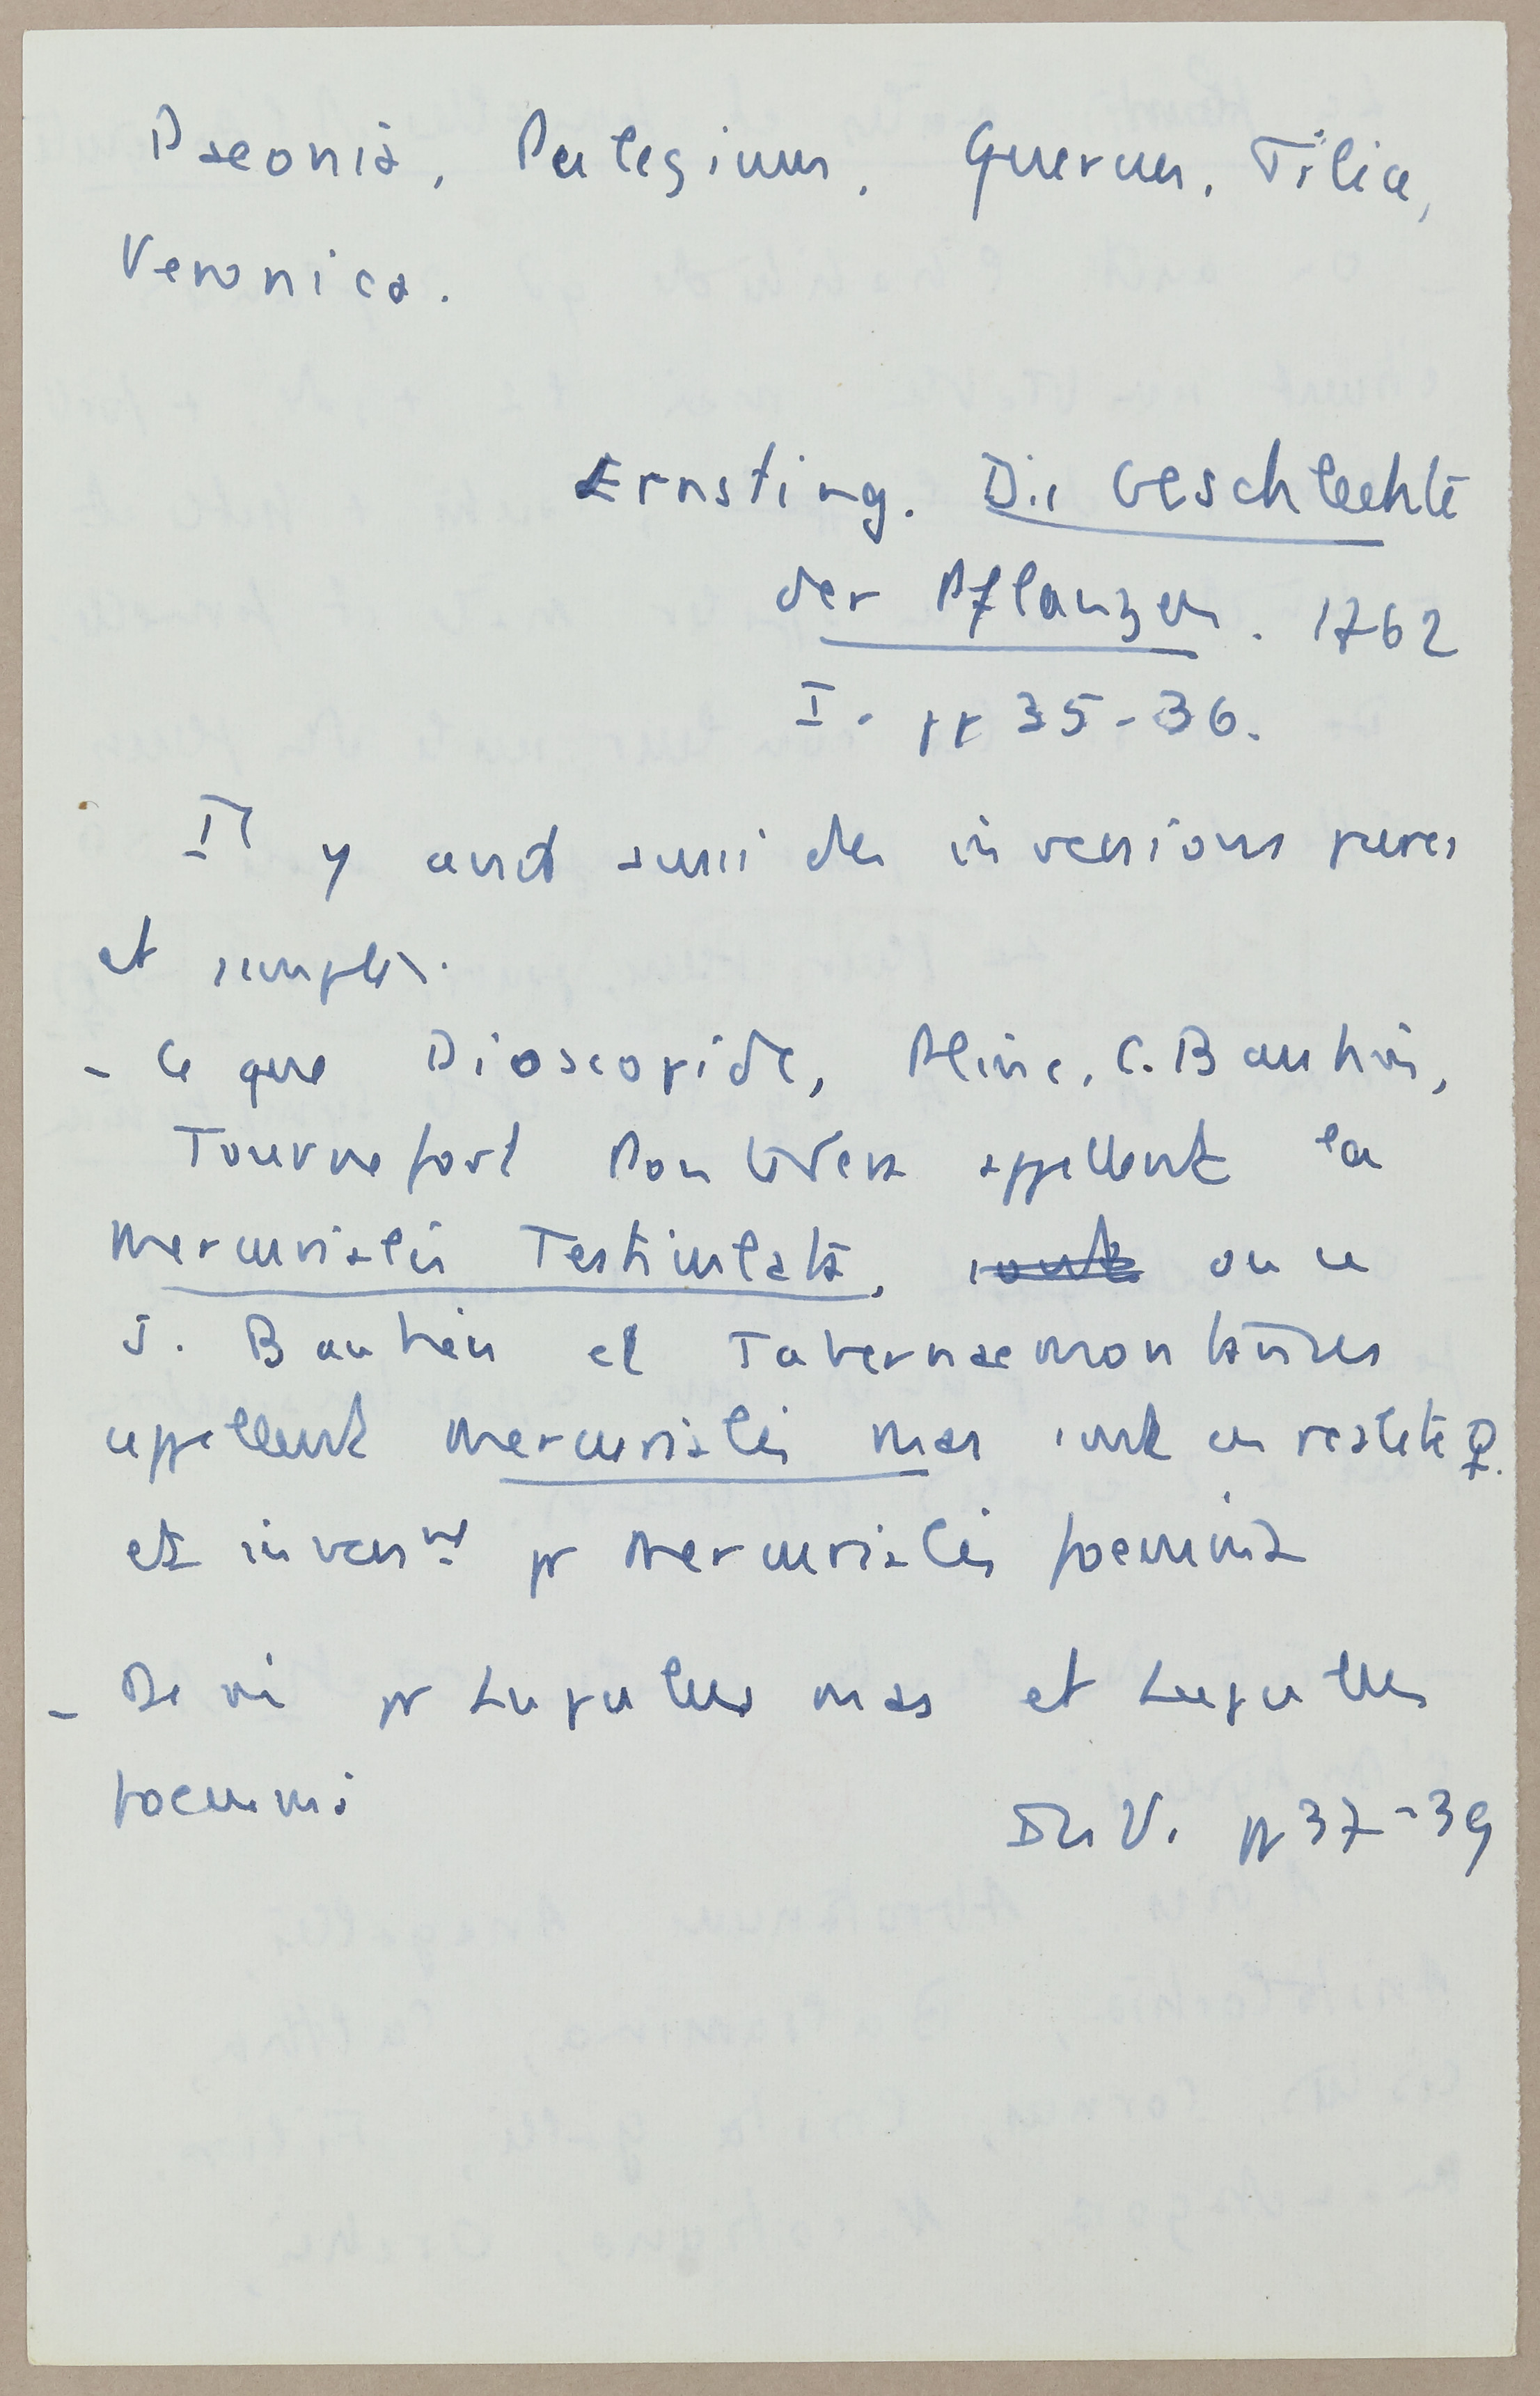 Paeonia, Pulegium, Quercus, Tilia,
Veronica.
Ernsting. Die Geschlechte
der Pflanzen. 1762
I. pp 35-36.
Il y avait aussi des inversions pures
et simples.
- Ce que Dioscoride, Pline, C. Bauhin,
Tournefort Pontedera appellent la
Mercurialis Testiculata, sont ou ce
J. Bauhin et Tabernaemontanus
appellent Mercurialis mas sont en réalité ♀.
et invert pr Mercurialis foemina
- De m̂ pr Lupulus mas et Lupulus
foemini
pp 37-39